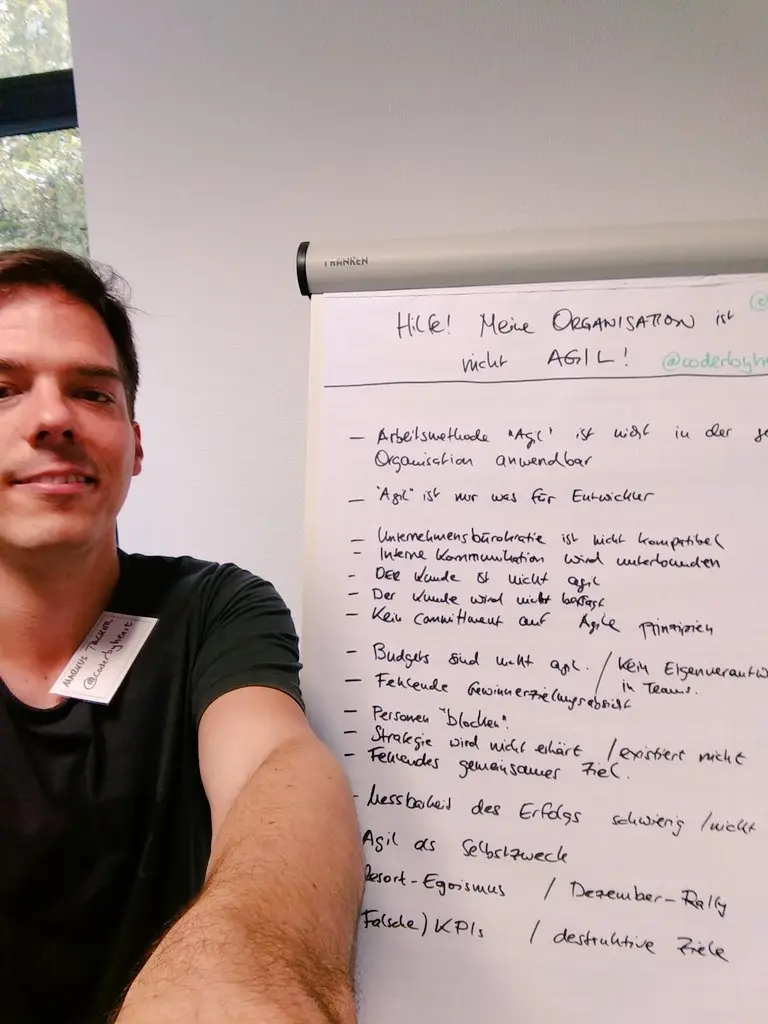 FRANKEN
Hilfe! Meine ORGANISATION ist
nicht AGIL!
@coderbyhe
— Arbeitsmethode "Agil" ist nicht in der ge
Organisation anwendbar
— "Agil" ist nur was für Entwickler
— Unternehmensbürokratie ist nicht kompatibel
- Interne Kommunikation wird unterbunden
- DER Kunde ist nicht agil
- Der Kunde wird nicht befragt
- Kein Committment auf Agile Prinzipien
- Budgets sind nicht agil. / Kein Eigenverantw
in Teams.
- Fehlende Gewinnerzielungsabsicht
- Personen "blocken".
- Strategie wird nicht erklärt / existiert nicht
- Fehlendes gemeinsames Ziel.
- Messbarkeit des Erfolgs schwierig / nicht
Agil als Selbstzweck
Resort-Egoismus / Dezember-Rally
Falsche) KPIs / destruktive Ziele
MARKUS TACKER
@coderbyheart